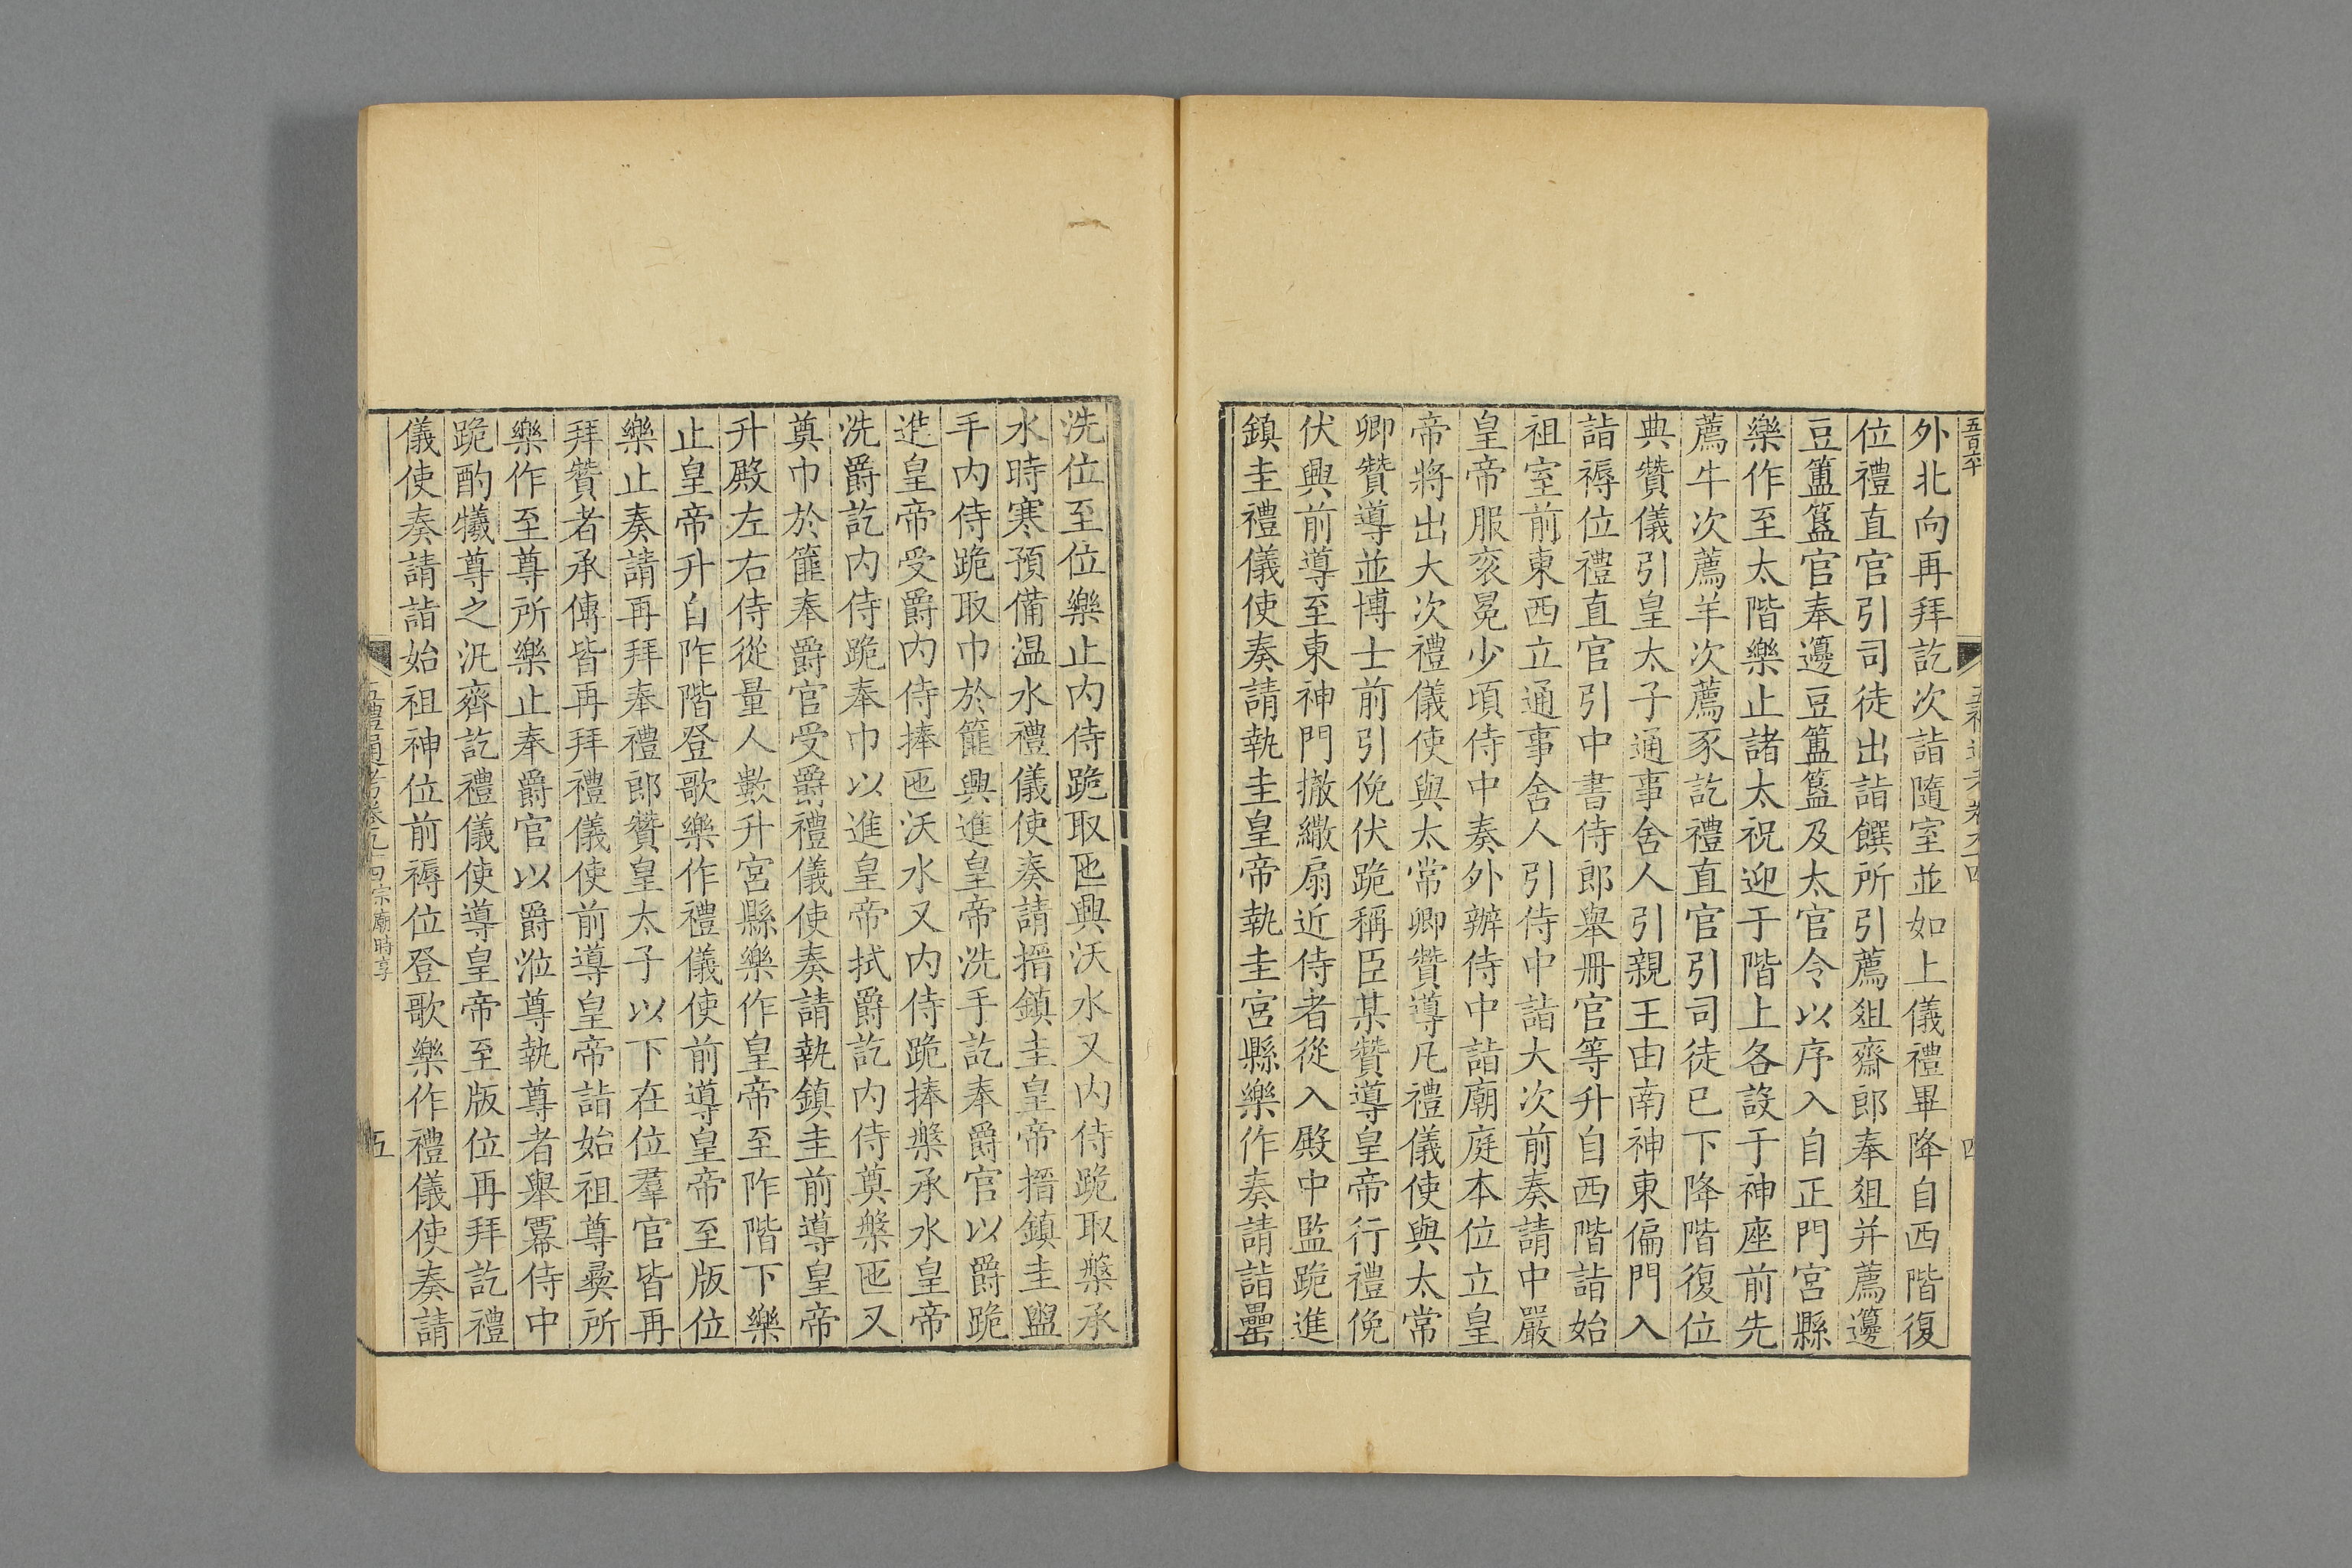 外北向再拜訖次詣隨室並如上儀禮畢降自西階復
位禮直官引司徒出詣饌所引薦俎齋郎奉俎并薦籩
豆簠簋官奉籩豆簠簋及太官令以序入自正門宮縣
樂作至太階樂止諸太祝迎于階上各設于神座前先
薦牛次薦羊次薦豕訖禮直官引司徒已下降階復位
典贊儀引皇太子通事舍人引親王由南神東偏門入
詣褥位禮直官引中書侍郎舉冊官等升自西階詣始
祖室前東西立通事舍人引侍中詣大次前奏請中嚴
皇帝服袞冕少頃侍中奏外辦侍中詣廟庭本位立皇
帝將出大次禮儀使與太常卿贊導凡禮儀使與太常
卿贊導並博士前引俛伏跪稱臣某贊導皇帝行禮俛
伏興前導至東神門撤繖扇近侍者從入殿中監跪進
鎮圭禮儀使奏請執圭皇帝執圭宮縣樂作奏請詣罍
洗位至位樂止内侍跪取匜興沃水又内侍跪取槃承
水時寒預備温水禮儀使奏請搢鎮圭皇帝搢鎮圭盥
手内侍跪取巾於篚興進皇帝洗手訖奉爵官以爵跪
進皇帝受爵内侍捧匜沃水又内侍跪捧槃承水皇帝
洗爵訖内侍跪奉巾以進皇帝拭爵訖内侍奠槃匜又
奠巾於篚奉爵官受爵禮儀使奏請執鎮圭前導皇帝
升殿左右侍從量人數升宮縣樂作皇帝至阼階下樂
止皇帝升自阼階登歌樂作禮儀使前導皇帝至版位
樂止奏請再拜奉禮郎贊皇太子以下在位羣官皆再
拜贊者承傳皆再拜禮儀使前導皇帝詣始祖尊彝所
樂作至尊所樂止奉爵官以爵涖尊執尊者舉冪侍中
跪酌犧尊之汎齊訖禮儀使導皇帝至版位再拜訖禮
儀使奏請詣始祖神位前褥位登歌樂作禮儀使奏請
五禮通考卷九十四宗廟時享 五